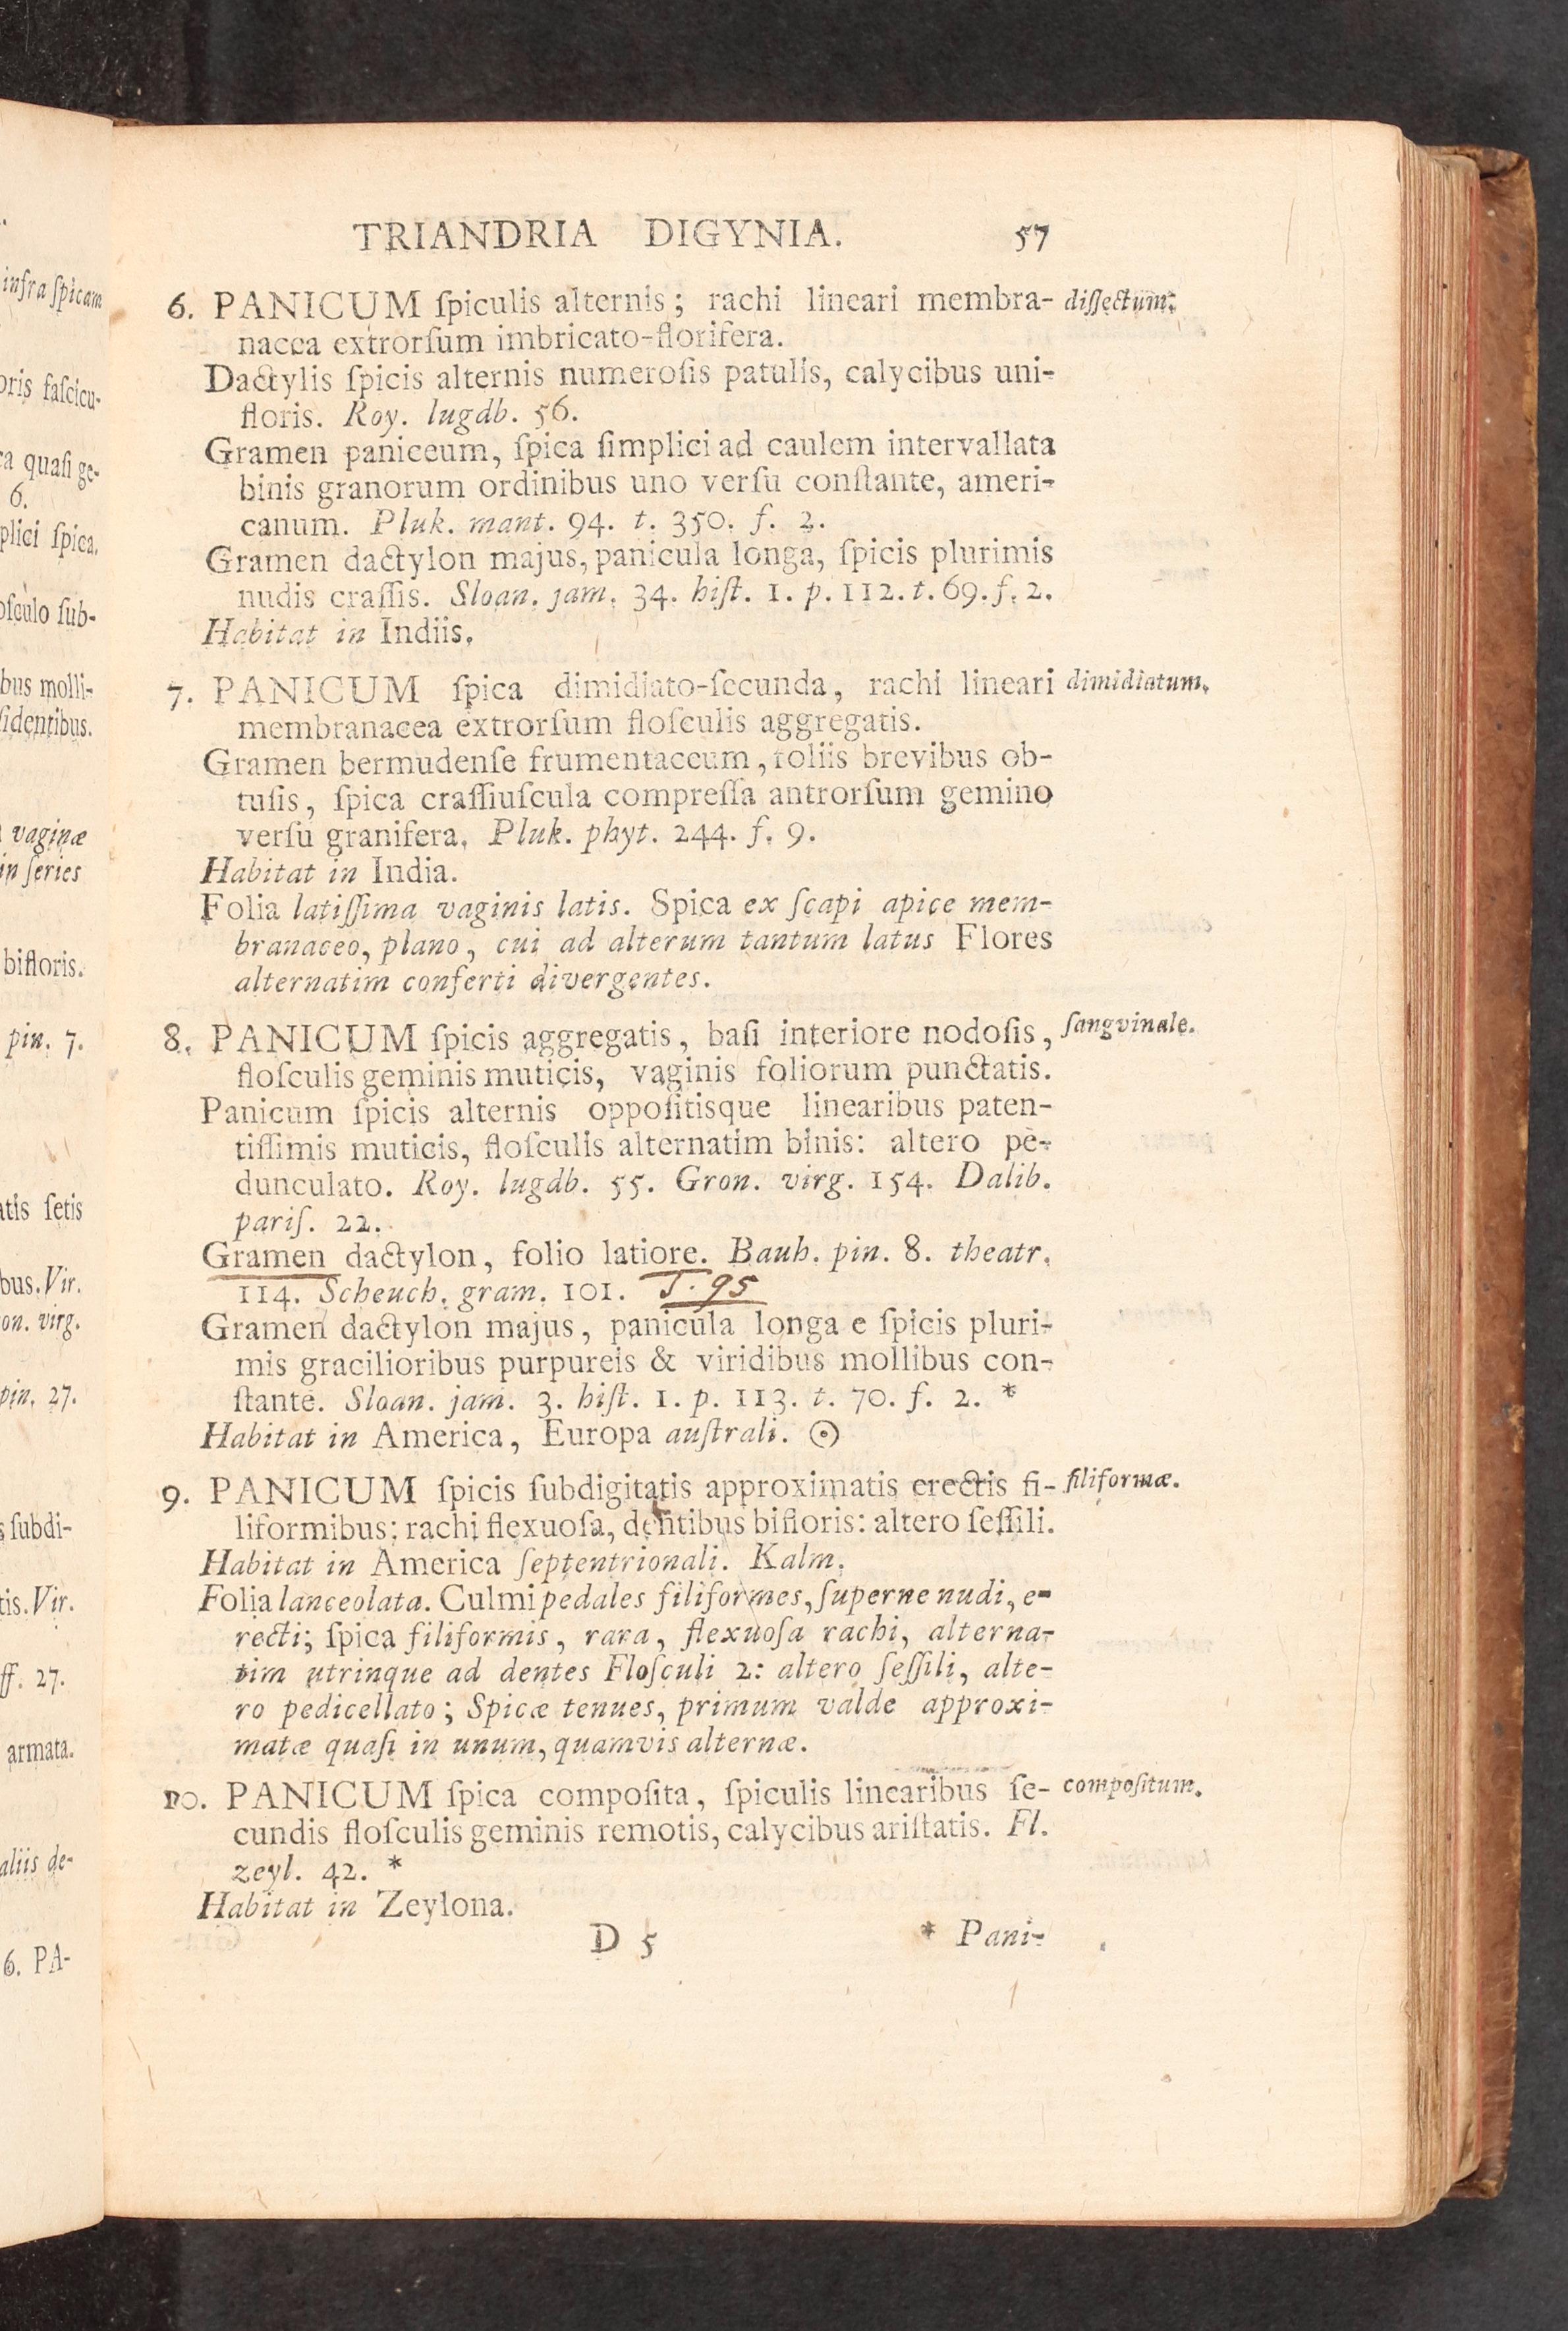 TRIANDRIA DIGYNIA. 57
6. PANICUM ſpiculis alternis; rachi lineari membra- diſſectum.
nacea extrorſum imbricato-florifera.
Dactylis ſpicis alternis numeroſis patulis, calycibus uni-
floris. Roy. lugdb. 56.
Gramen paniceum, ſpica ſimplici ad caulem intervallata
binis granorum ordinibus uno verſu conſtante, ameri-
canum. Pluk. mant. 94. t. 350. f. 2.
Gramen dactylon majus, panicula longa, ſpicis plurimis
nudis craſſis. Sloan. jam. 34. hiſt. 1. p. 112. t. 69. f. 2.
Habitat in Indiis.
7. PANICUM ſpica dimidiato-ſecunda, rachi lineari dimidiatum.
membranacea extrorſum floſculis aggregatis.
Gramen bermudenſe frumentaceum, foliis brevibus ob-
tuſis, ſpica craſſiuſcula compreſſa antrorſum gemino
verſu granifera. Pluk. phyt. 244. f. 9.
Habitat in India.
Folia latiſſima vaginis latis. Spica ex ſcapi apice mem-
branaceo, plano, cui ad alterum tantum latus Flores
alternatim conferti divergentes.
8. PANICUM ſpicis aggregatis, baſi interiore nodoſis, ſangvinale.
floſculis geminis muticis, vaginis foliorum punctatis.
Panicum ſpicis alternis oppoſitisque linearibus paten-
tiſſimis muticis, floſculis alternatim binis: altero pe-
dunculato. Roy. lugdb. 55. Gron. virg. 154. Dalib.
pariſ. 22.
Gramen dactylon, folio latiore. Bauh. pin. 8. theatr.
114. Scheuch. gram. 101. T. 95
Gramen dactylon majus, panicula longa e ſpicis pluri-
mis gracilioribus purpureis & viridibus mollibus con-
ſtante. Sloan. jam. 3. hiſt. 1. p. 113. t. 70. f. 2. *
Habitat in America, Europa auſtrali. ☉
9. PANICUM ſpicis ſubdigitatis approximatis erectis fi- filiformæ.
liformibus; rachi flexuoſa, dentibus bifloris: altero ſeſſili.
Habitat in America ſeptentrionali. Kalm.
Folia lanceolata. Culmi pedales filiformes, ſuperne nudi, e-
recti; ſpica filiformis, rara, flexuoſa rachi, alterna-
tim utrinque ad dentes Floſculi 2: altero ſeſſili, alte-
ro pedicellato; Spicæ tenues, primum valde approxi-
matæ quaſi in unum, quamvis alternæ.
10. PANICUM ſpica compoſita, ſpiculis linearibus ſe- compoſitum.
cundis floſculis geminis remotis, calycibus ariſtatis. Fl.
zeyl. 42. *
Habitat in Zeylona.
D 5 * Pani-
infra ſpicam
oris faſcicu-
ra quaſi ge-
6.
plici ſpica,
oſculo ſub-
bus molli-
ſidentibus.
vaginæ
in ſeries
bifloris.
pin. 7.
atis ſetis
bus. Vir.
on. virg.
pin. 27.
s ſubdi-
tis. Vir.
ff. 27.
armata.
aliis de-
6. PA-